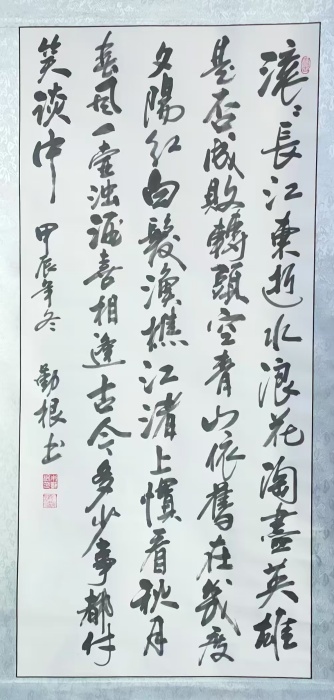 滚〻長江東逝水浪花淘盡英雄
是否成敗轉頭空青山依舊在幾度
夕陽红白髮漁樵江渚上慣看秋月
春風一壺浊酒喜相逢古今多少事都付
笑谈中 甲辰年冬 勤根书